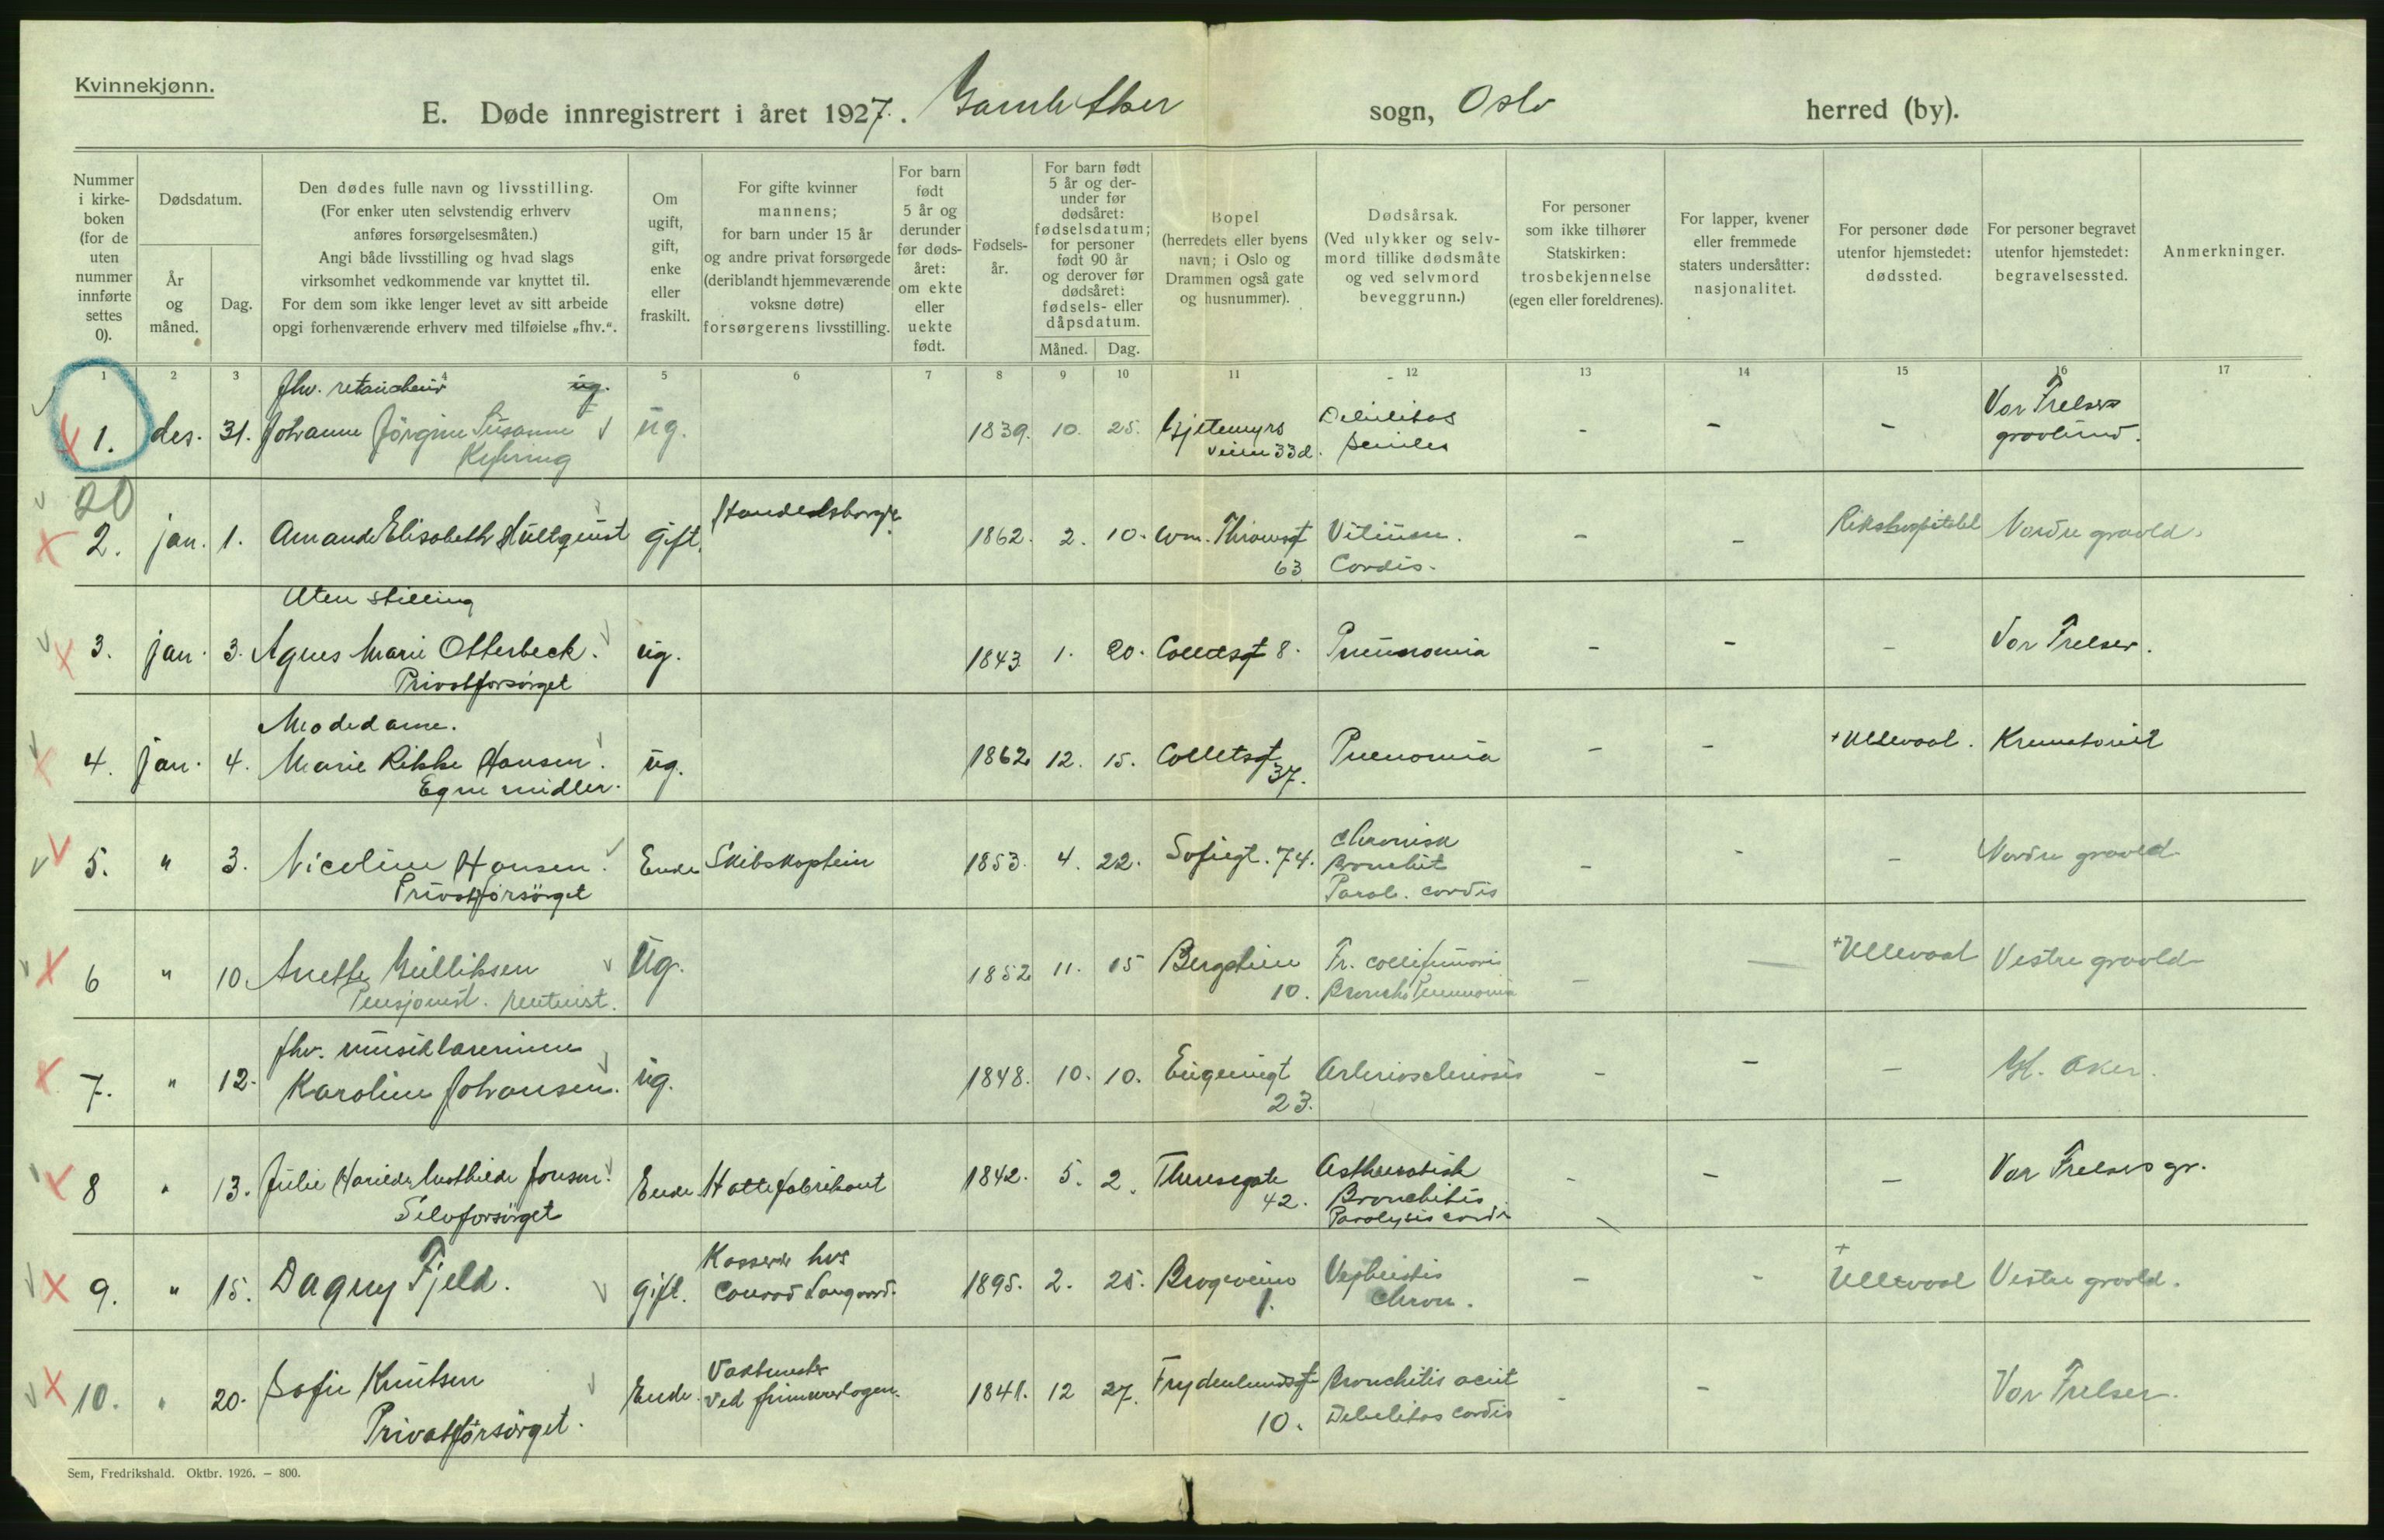 Kvinnekjønn.
E. Døde innregistrert i året 1927. Gamle Aker sogn, Oslo herred (by).
Nummer i kirkeboken (for de uten nummer innførte settes 0).
Dødsdatum.
År og måned.
Dag.
Den dødes fulle navn og livsstilling.
(For enker uten selvstendig erhverv
anføres forsørgelsesmåten.)
Angi både livsstilling og hvad slags
virksomhet vedkommende var knyttet til.
For dem som ikke lenger levet av sitt arbeide
opgi forhenværende erhverv med tilføielse „fhv.“.
Om
ugift,
gift,
enke
eller
fraskilt.
For gifte kvinner
mannens;
for barn under 15 år
og andre privat forsørgede
(deriblandt hjemmeværende
voksne døtre)
forsørgerens livsstilling.
For barn
født
5 år og
derunder
før døds-
året:
om ekte
eller
uekte
født.
Fødsels-
år.
For barn født
5 år og der-
under før
dødsåret:
fødselsdatum;
for personer
født 90 år
og derover før
dødsåret:
fødsels- eller
dåpsdatum.
Måned.
Dag.
Bopel
(herredets eller byens
navn; i Oslo og
Drammen også gate
og husnummer).
Dødsårsak.
(Ved ulykker og selv-
mord tillike dødsmåte
og ved selvmord
beveggrunn.)
For personer
som ikke tilhører
Statskirken:
trosbekjennelse
(egen eller foreldrenes).
For lapper, kvener
eller fremmede
staters undersåtter:
nasjonalitet.
For personer døde
utenfor hjemstedet:
dødssted.
For personer begravet
utenfor hjemstedet:
begravelsessted.
Anmerkninger.
1 2 3 4 5 6 7 8 9 10 11 12 13 14 15 16 17
fhv. ug.
1. des. 31. Johanne Jörgine Susanne ug. 1839. 10. 25. Gjetemyrs Debilitas - - - Vor Frelsers
veien 33d. seniles gravlund.
20
Handelsborger
2. jan. 1. Amanda Elisabeth Hullquist gift. 1862. 2. 10. Wm. Thranesgt Vitium. - - Rikshospitalet Nordre gravld.
63 Cordis.
Uten stilling
3. jan. 3. Agnes Marie Otterbeck. ug. 1843 1. 20. Colletsgt 8. Pneumonia - - - Vor Frelser.
Privatforsörget
Modedame.
4. jan. 4. Marie Rikke Hansen. ug. 1862 12. 15. Colletsgt 37. Pneumonia - - + Ullevaal. Krematoriet
Egne midler.
5. " 3. Nicoline Hansen. Enke Skibskaptein 1853. 4. 22. Sofiegt. 74. Chronisk - - - Nordre gravld.
Privatforsörget Bronchit
Paral. cordis
6 " 10. Anette Gulliksen ug. 1852 11. 15 Bergslien Fr. colli femoris - — + Ullevaal Vestre gravld
Pensjonist. rentenist. 10. Broncho Pneumonia
fhv. musiklærerinne
7. " 12. Karoline Johansen. ug. 1848. 10. 10. Eugeniegt Arteriosclerosis - - - Gl. Aker.
23.
8 " 13. Julie Mathilde Jonsen. Enke Hattefabrikant 1842. 5. 2. Theresegate Asthmatisk - - - Vor Frelsers gr.
Selvforsörget 42. Bronchitis
Paralysis cordis
Kasserer hos
9. " 15. Dagny Fjeld. gift. Conrad Langaard. 1895. 2. 25. 1. - - + Ullevaal Vestre gravld.
chron.
Vaktmester
10. " 20. Sofie Knutsen Enke. ved frimurerlogen. 1841. 12 27. Frydenlundsgt Bronchitis acut - - Vor Frelser.
Privatforsörget. 10. Debilitas cordis
Sem, Fredrikshald. Oktbr. 1926. – 800.